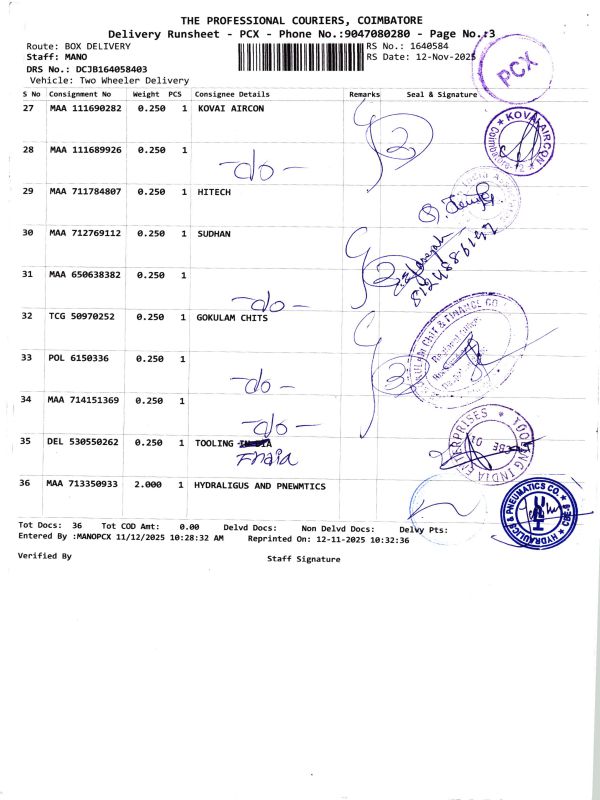 THE PROFESSIONAL COURIERS, COIMBATORE
Delivery Runsheet - PCX - Phone No.:9047080280 - Page No.:3
Route: BOX DELIVERY RS No.: 1640584
Staff: MANO RS Date: 12-Nov-2025
DRS No.: DCJB164058403
Vehicle: Two Wheeler Delivery
PCX
S No Consignment No Weight PCS Consignee Details Remarks Seal & Signature
27 MAA 111690282 0.250 1 KOVAI AIRCON
KOVAI AIRCON
28 MAA 111689926 0.250 1 -do- 2
29 MAA 711784807 0.250 1 HITECH
30 MAA 712769112 0.250 1 SUDHAN
31 MAA 650638382 0.250 1 -do- 2
32 TCG 50970252 0.250 1 GOKULAM CHITS
33 POL 6150336 0.250 1 -do- 3
34 MAA 714151369 0.250 1 -do-
35 DEL 530550262 0.250 1 TOOLING INDIA
India
TOOLING INDIA ENTERPRISES
CBE
36 MAA 713350933 2.000 1 HYDRALIGUS AND PNEWMTICS
HYDRAULICS & PNEUMATICS CO.
Tot Docs: 36 Tot COD Amt: 0.00 Delvd Docs: Non Delvd Docs: Delvy Pts:
Entered By :MANOPCX 11/12/2025 10:28:32 AM Reprinted On: 12-11-2025 10:32:36
Verified By Staff Signature